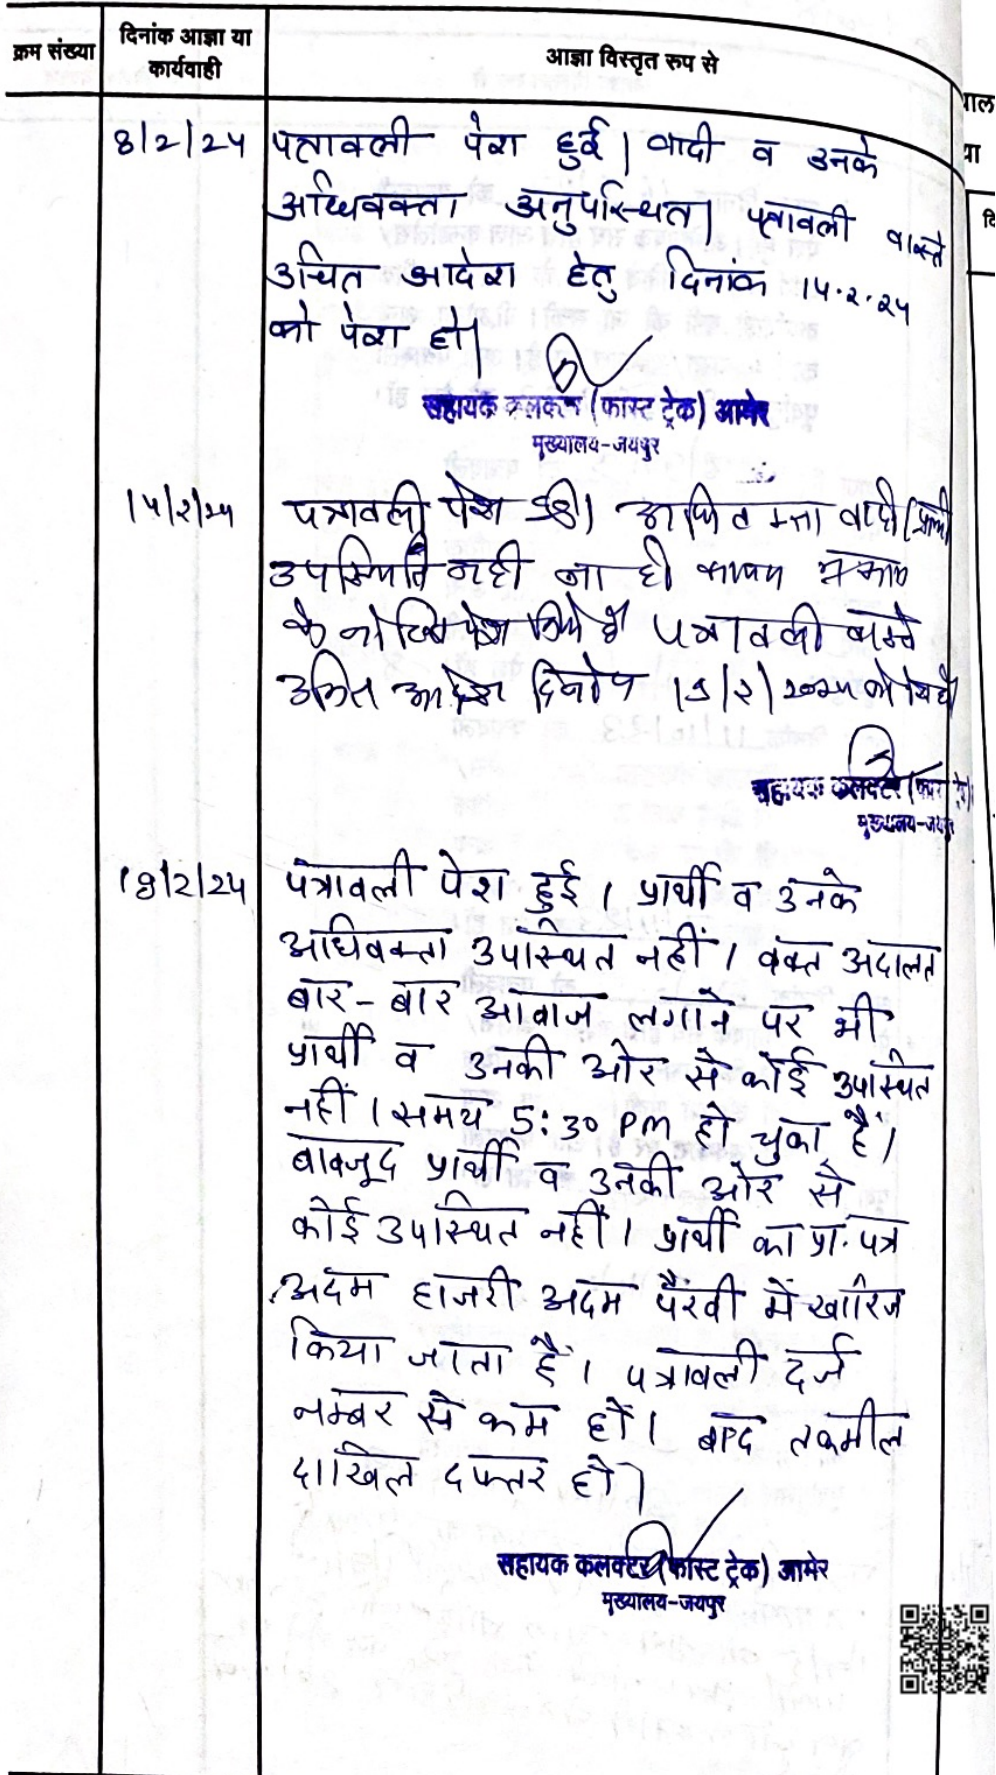 क्रम संख्या
दिनांक आज्ञा या
कार्यवाही
आज्ञा विस्तृत रुप से
8/2/24 पत्रावली पेश हुई। वादी व उनके
अधिवक्ता अनुपस्थित। पत्रावली वास्ते
उचित आदेश हेतु दिनांक 14.2.24
को पेश हो।
सहायक कलक्टर (फास्ट ट्रेक) आमेर
मुख्यालय-जयपुर
पत्रावली पेश हुई। अधिवक्ता वादी
उपस्थित नहीं ना ही
पेश किये है पत्रावली वास्ते
उचित आदेश दिनांक
सहायक कलक्टर
मुख्यालय-जयपुर
19/2/24 पत्रावली पेश हुई। प्रार्थी व उनके
अधिवक्ता उपस्थित नहीं। वक्त अदालत
बार-बार आवाज लगाने पर भी
प्रार्थी व उनकी ओर से कोई उपस्थित
नहीं। समय 5:30 PM हो चुका है।
बावजूद प्रार्थी व उनकी ओर से
कोई उपस्थित नहीं। प्रार्थी का प्रा. पत्र
अदम हाजरी अदम पैरवी में खारिज
किया जाता है। पत्रावली दर्ज
नम्बर से कम हो। बाद तकमील
दाखिल दफ्तर हो।
सहायक कलक्टर (फास्ट ट्रेक) आमेर
मुख्यालय-जयपुर